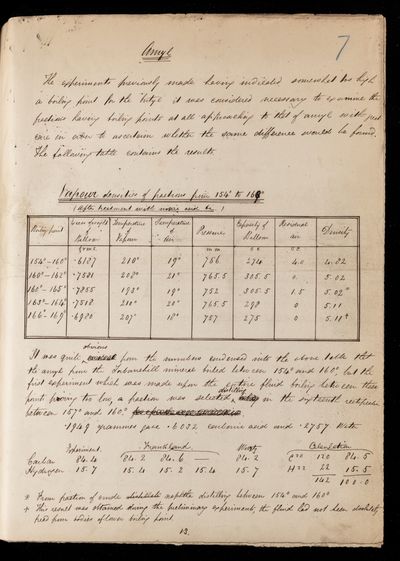 7
Amyl
The experiments previously made having indicated somewhat too high
a boiling point for the butyl it was considered necessary to examine the
fractions having boiling points at all approaching to that of amyl with great
care in order to ascertain whether the same difference would be found.
The following table contains the results.
Vapour densities of fractions from 154° to 169°
after treatment with
Boiling point Excess weight of Balloon Temperature of Vapour Temperature of Air Pressure Capacity of Balloon Residual air Density
Grms m m c.c c.c.
154°-160° .6187 210° 19° 766 274 4.0 4.82
160°-162° .7581 208° 21° 765.5 305.5 0. 5.02
162°-165° .7855 192° 19° 752 305.5 1.5 5.02*
163°-164° .7518 210° 20° 765.5 298 0 5.11
166°-169° .6980 207° 18° 757 275 0 5.18†
obvious
It was quite from the numbers condensed into the above table that
the amyl from the Torbanehill mineral boiled between 154° and 160° but the
first experiment which was made upon the entire fluid boiling between these
distilling
point proving too low, a fraction was selected in the sixteenth rectification
between 157° and 160°
.1949 grammes gave .6032 carbonic acid and .2757 water
Experiment. Frankland Wurtz Calculation
Carbon 84.4 84.2 84.6 — 84.2 C20 120 84.5
Hydrogen 15.7 15.4 15.2 15.4 15.7 H22 22 15.5
142 100.0
* From fraction of crude naphtha distilling between 154° and 160°
† This result was obtained during the preliminary experiments, the fluid had not been absolutely
freed from bodies of lower boiling point.
13.